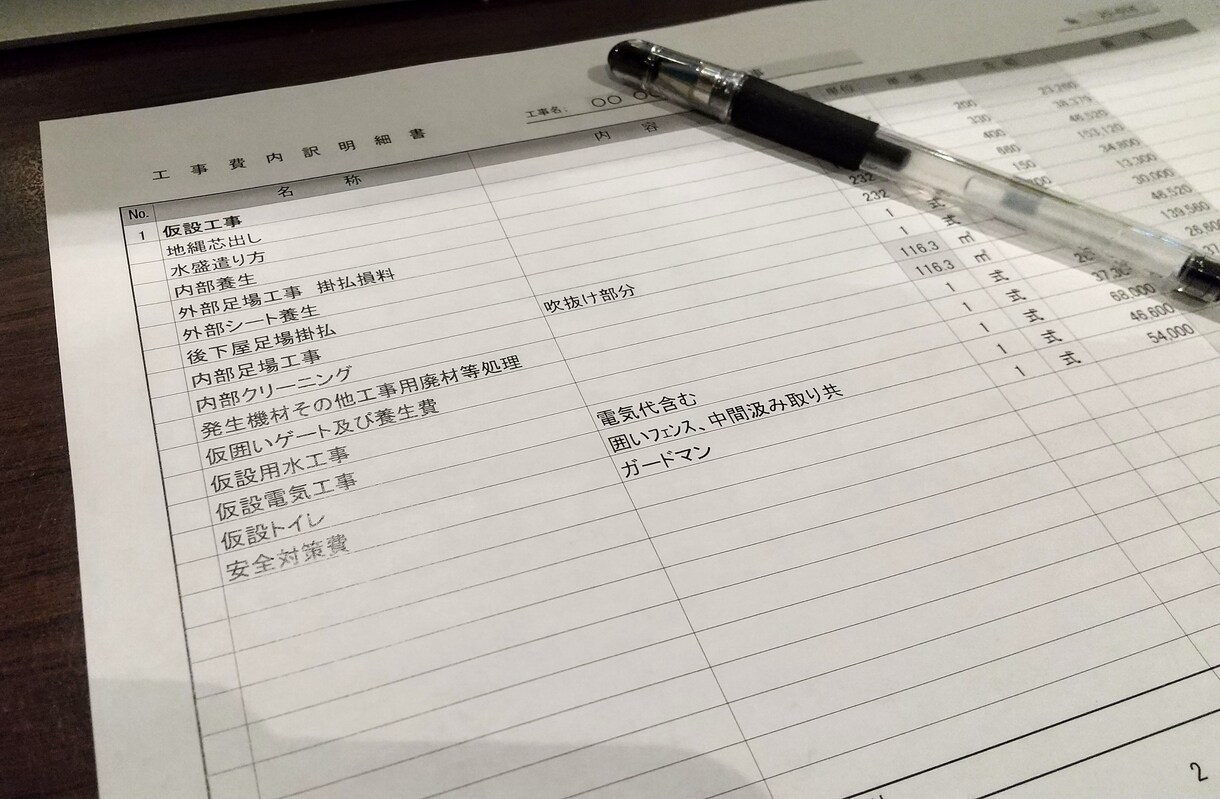 工事費内訳明細書
工事名: 〇〇
No. 名称 内容 単位 単価 金額
1 仮設工事
地縄芯出し
水盛遣り方
内部養生
外部足場工事 掛払損料
外部シート養生
後下屋足場掛払 吹抜け部分
内部足場工事
内部クリーニング
発生機材その他工事用廃材等処理
仮囲いゲート及び養生費
仮設用水工事
仮設電気工事 電気代含む
仮設トイレ 囲いフェンス、中間汲み取り共
安全対策費 ガードマン
232
232
1 式
1 式
116.3 ㎡
116.3 ㎡
1 式
1 式
1 式
1 式
1 式
200
330
400
660
150
23,260
38,379
46,520
153,120
34,800
13,300
30,000
46,520
139,560
68,000
46,600
54,000
2